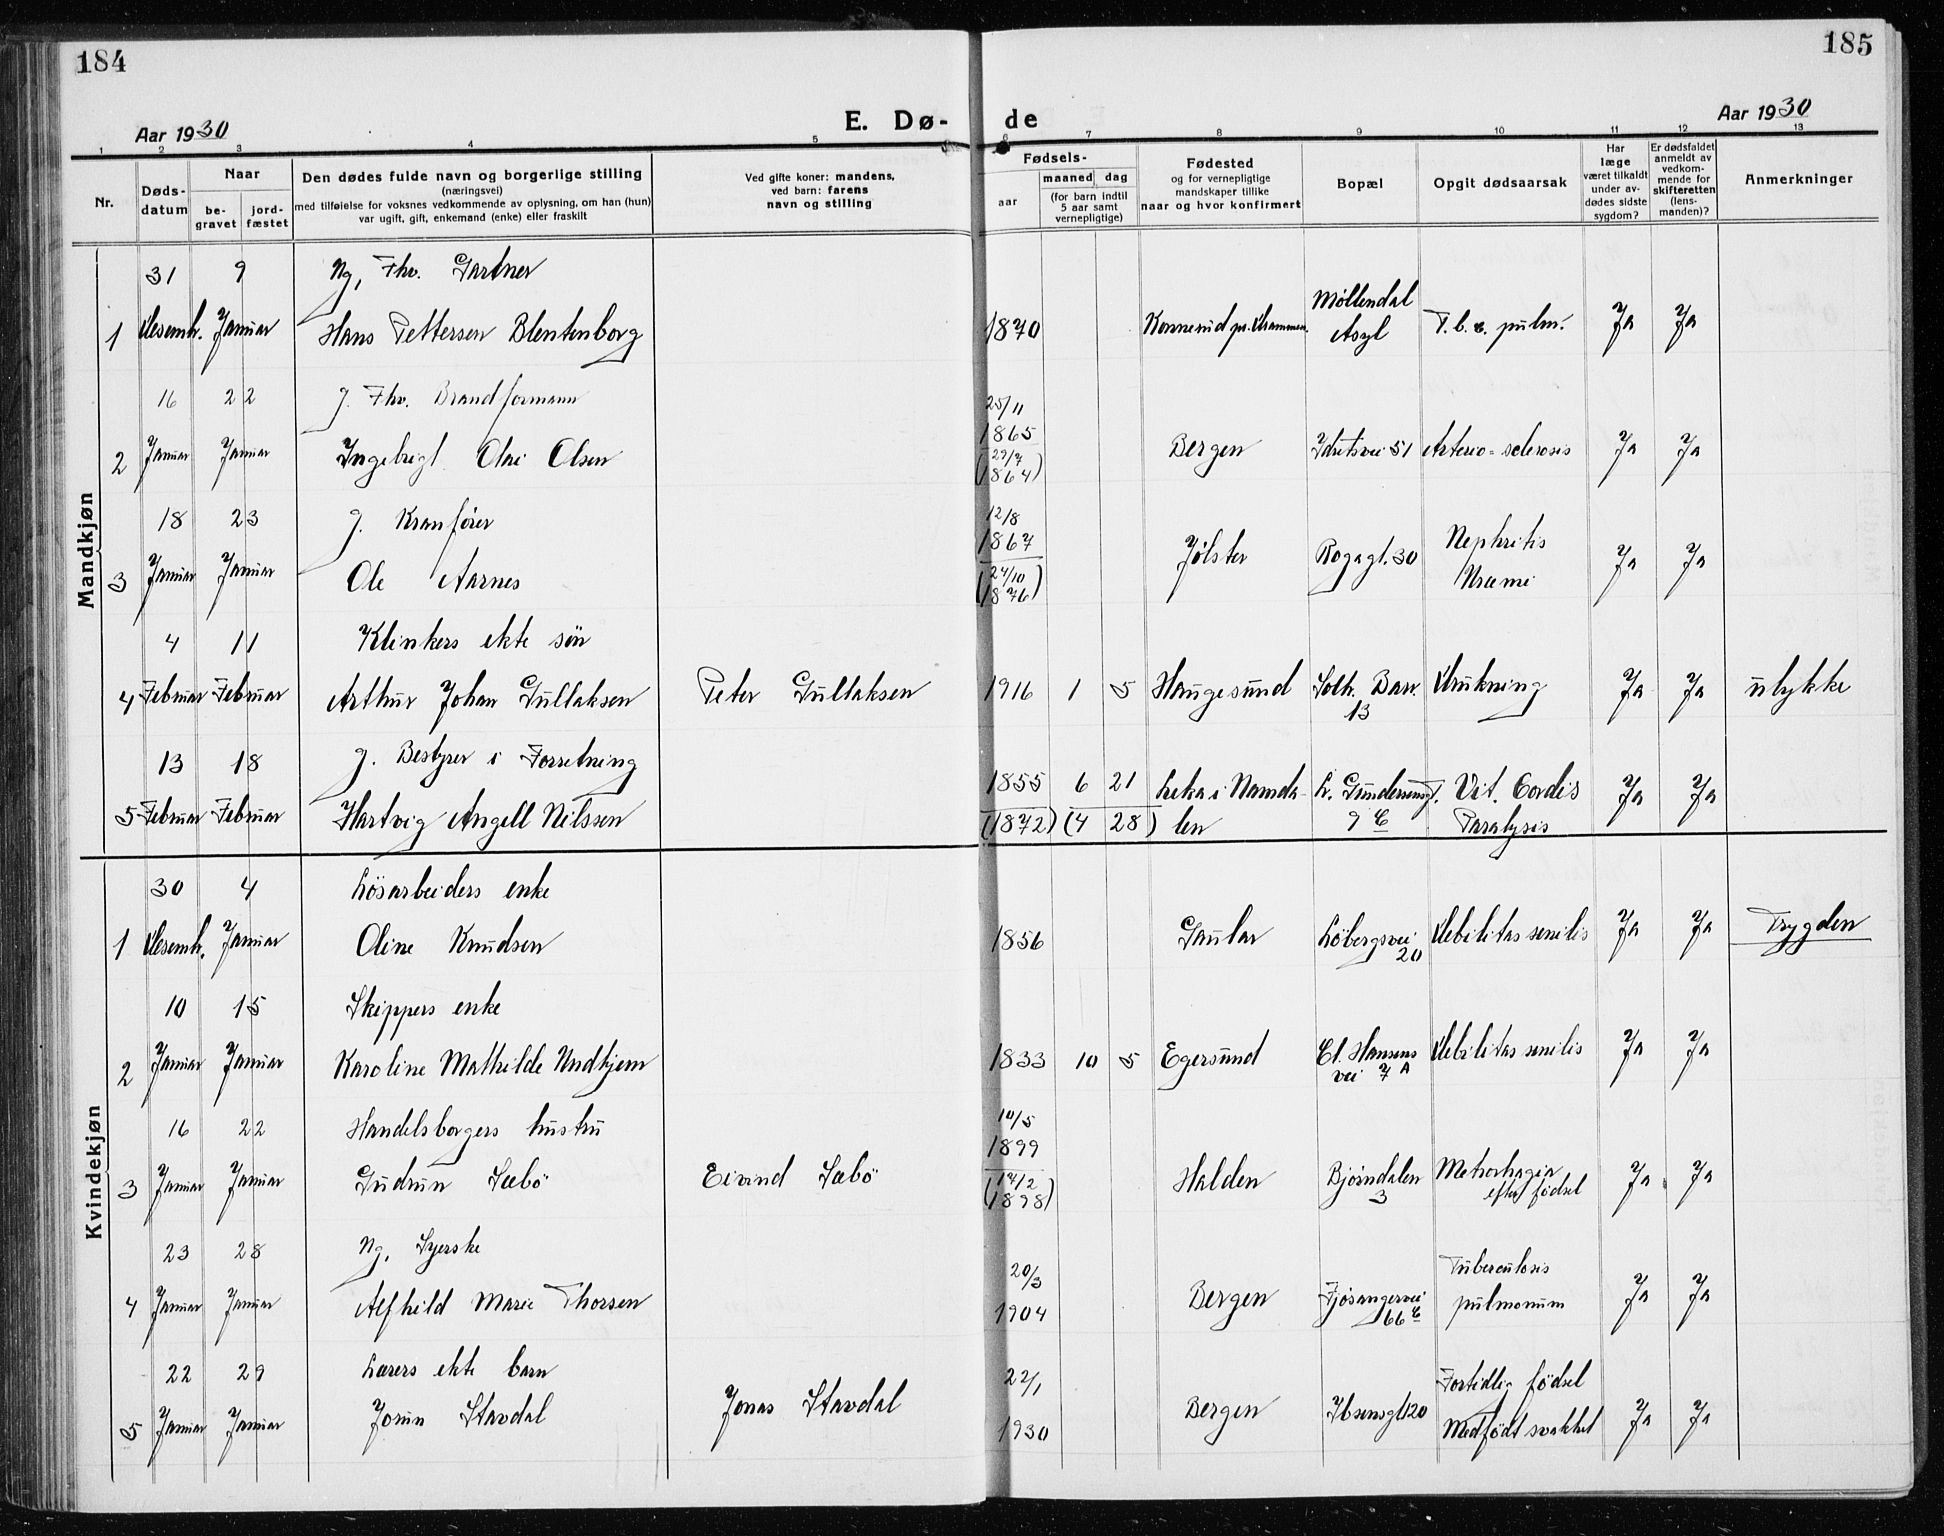 184
185
Aar 1930
E. Dø-
de
Aar 1930
1 2 3 4 5 6 7 8 9 10 11 12 13
Nr.
Døds-
datum
Naar
be-
gravet
jord-
fæstet
Den dødes fulde navn og borgerlige stilling
(næringsvei)
med tilføielse for voksnes vedkommende av oplysning, om han (hun)
var ugift, gift, enkemand (enke) eller fraskilt
Ved gifte koner: mandens,
ved barn: farens
navn og stilling
Fødsels-
aar
maaned dag
(for barn indtil
5 aar samt
vernepligtige)
Fødested
og for vernepligtige
mandskaper tillike
naar og hvor konfirmert
Bopæl
Opgit dødsaarsak
Har
læge
været tilkaldt
under av-
dødes sidste
sygdom?
Er dødsfaldet
anmeldt av
vedkom-
mende for
skifteretten
(lens-
manden)?
Anmerkninger
Mandkjøn
31 9 Ug, Fhv. Gartner
Møllendal
1 Desemb. Januar Hans Pettersen Blentenborg 1870 Konnerud pr. Drammen. Asyl T.b.c. pulm. Ja Ja
16 22 g. Fhv. Brandformann 25/11
1865
2 Januar Januar Ingebrigt Olai Olsen Bergen Idretsvei 51 Arterio-sclerosis Ja Ja
(29/7
1864)
18 23 g. Kranfører 12/8
1867 Nephritis
3 Januar Januar Ole Aarnes Jølster Rogagt. 30 Uræmi Ja Ja
(24/10
1876)
4 11 Klinkers ekte søn
4 Februar Februar Arthur Johan Gullaksen Peter Gullaksen 1916 1 5 Haugesund Solh. Barr. Drukning Ja Ja ulykke
13
13 18 g. Bestyrer i Forretning
1855 6 21 Leka i Namda- Vit. Cordis Ja Ja
5 Februar Februar Hartvig Angell Nilssen (1872) (4 28) len 9 C Paralysis
Kvindekjøn
30 4 Løsarbeiders enke
1 Desemb. Januar Oline Knudsen 1856 Gaular Løbergsvei Debilitas senilis Ja Ja Trygden
20
10 15 Skippers enke
2 Januar Januar Karoline Mathilde Undhjem 1833 10 5 Egersund Cl. Hansens Debilitas senilis Ja Ja
vei 7 A
16 22 Handelsborgers hustru 10/5
1899
3 Januar Januar Gudrun Sæbö Eivind Sæbö Halden Bjørndalen Metrorhagia Ja Ja
(14/2
1898) 3 efter fødsel
23 28 Ug, Syerske 20/3 Tuberculosis
4 Januar Januar Alfhild Marie Thorsen 1904 Bergen Fjøsangervei pulmonum Ja Ja
66 C
22 29 Lærers ekte barn 22/1 Fortidlig fødsel
5 Januar Januar Jorun Stavdal Jonas Stavdal 1930 Bergen Ibsensgt 120 Medfødt svakhet Ja Ja